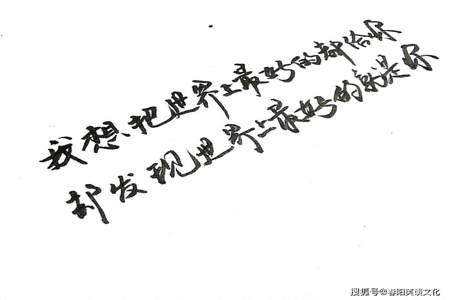 我想把世界上最好的都给你
却发现世界上最好的就是你
搜狐号@春阳笑滇文化